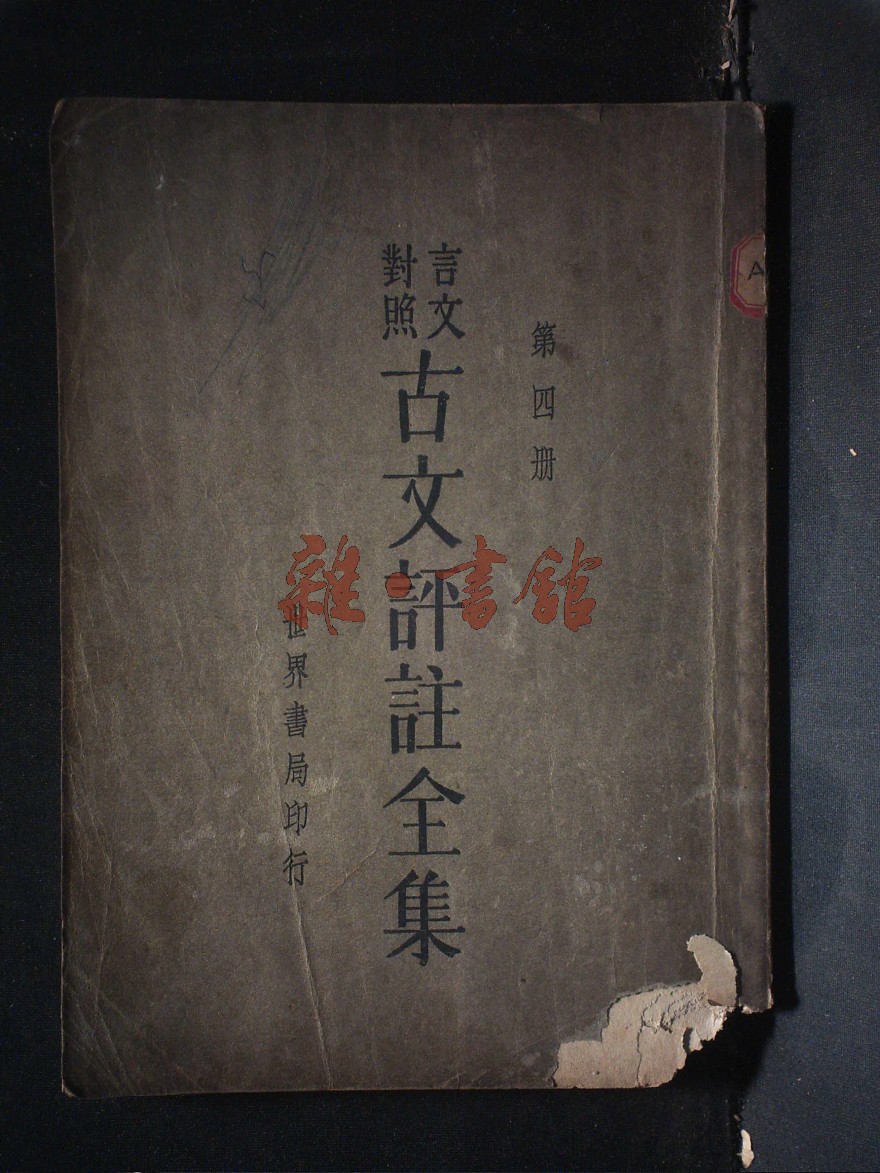 第四册
言文對照
古文評註全集
世界書局印行
雜·書館
A